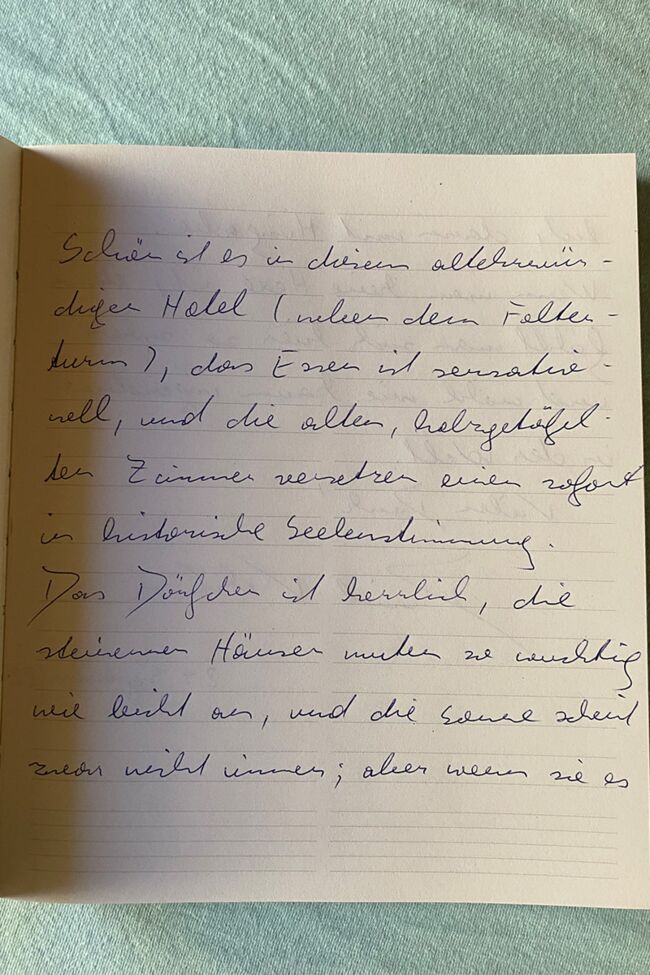 Schön ist es in diesem altehrwür-
digen Hotel (neben dem Folter-
turm), das Essen ist sensatio-
nell, und die alten, holzgetäfel-
ten Zimmer versetzen einen sofort
in historische Seelenstimmung.
Das Dörfchen ist herrlich, die
steinernen Häuser muten so wuchtig
wie leicht an, und die Sonne scheint
zwar nicht immer; aber wenn sie es